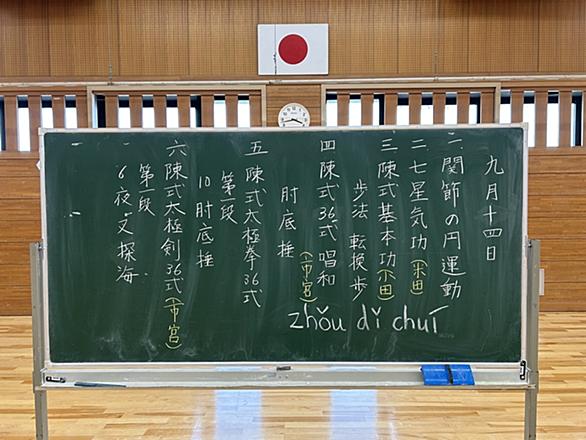 九月十四日
一 関節の円運動
二 七星気功(米田)
三 陳式基本功(下田)
歩法 転換歩
四 陳式36式 唱和
(市宮)
肘底捶
zhǒu dǐ chuí
五 陳式太極拳36式
第一段
10 肘底捶
六 陳式太極剣36式(市宮)
第一段
6 夜叉探海